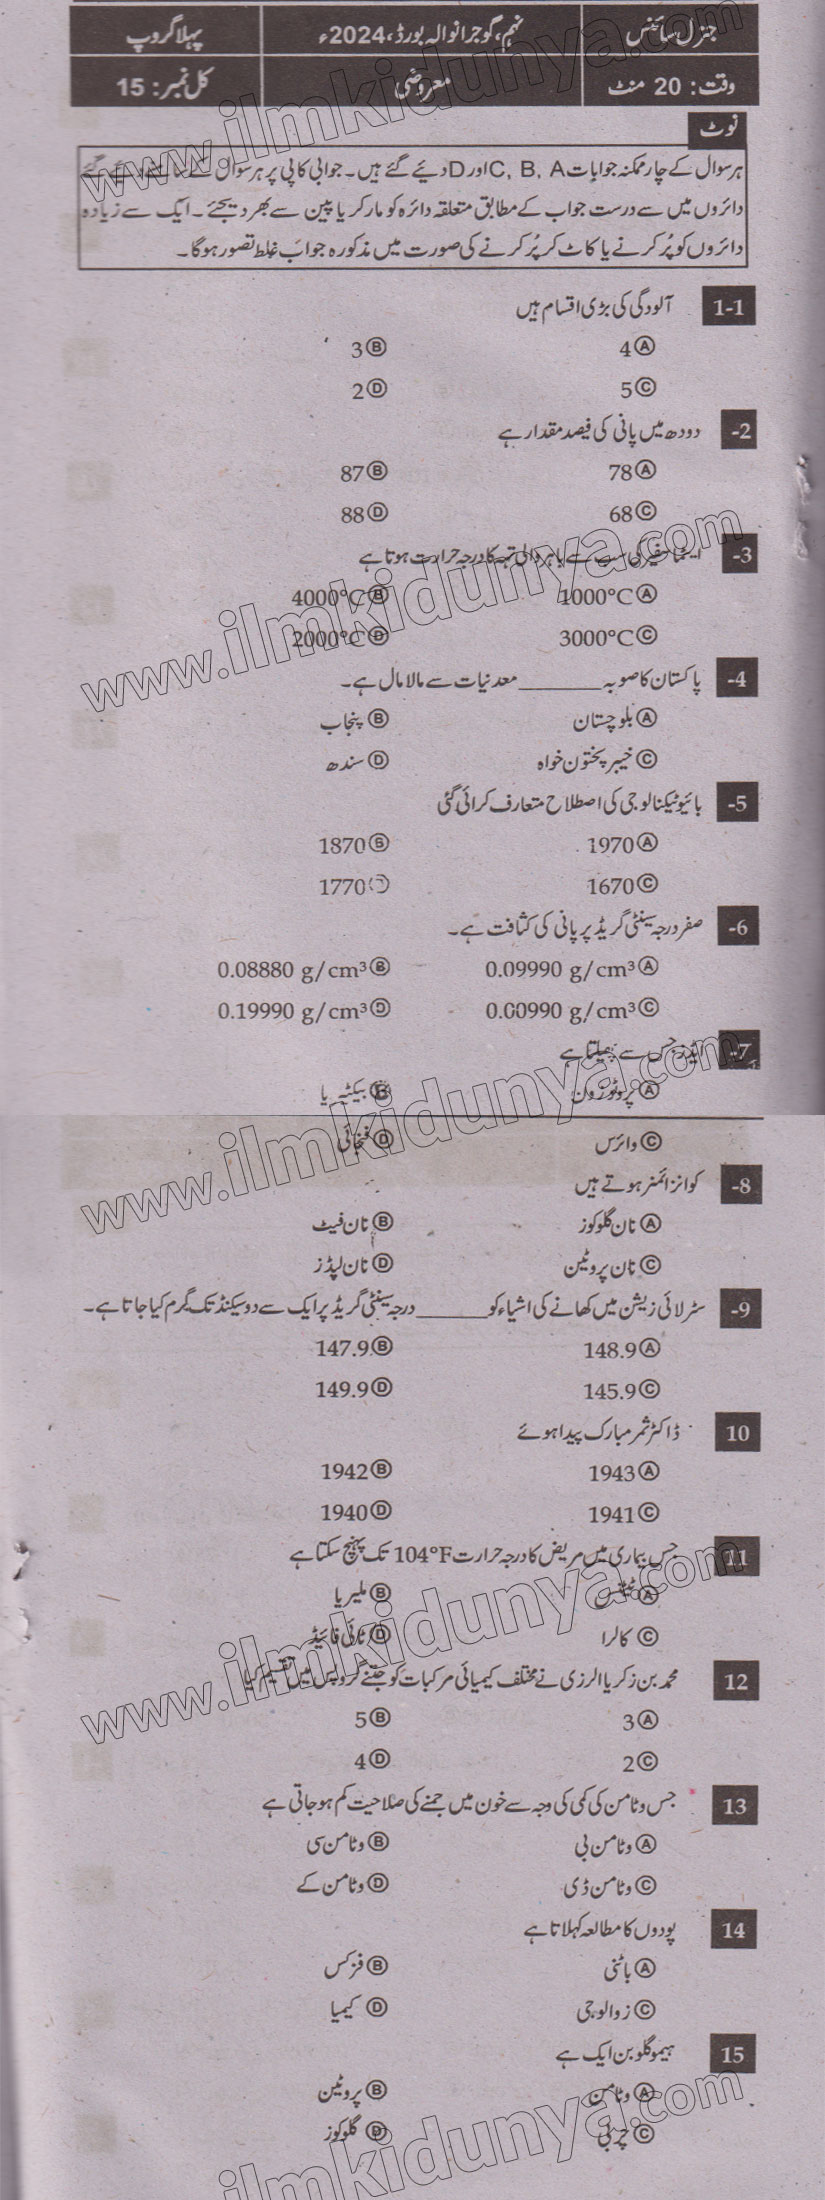 جنرل سائنس نہم، گوجرانوالہ بورڈ، 2024ء پہلا گروپ
وقت: 20 منٹ معروضی کل نمبر: 15
نوٹ
ہر سوال کے چار ممکنہ جوابات C, B, A اور D دیئے گئے ہیں۔ جوابی کاپی پر ہر سوال کے سامنے دیئے گئے
دائروں میں سے درست جواب کے مطابق متعلقہ دائرہ کو مارکر یا پین سے بھر دیجئے۔ ایک سے زیادہ
دائروں کو پُر کرنے یا کاٹ کر پُر کرنے کی صورت میں مذکورہ جواب غلط تصور ہوگا۔
1-1 آلودگی کی بڑی اقسام ہیں
Ⓐ 4 Ⓑ 3
Ⓒ 5 Ⓓ 2
-2 دودھ میں پانی کی فیصد مقدار ہے
Ⓐ 78 Ⓑ 87
Ⓒ 68 Ⓓ 88
-3 ایٹماسفیئر کی سب سے باہر والی تہہ کا درجہ حرارت ہوتا ہے
Ⓐ 1000°C Ⓑ 4000°C
Ⓒ 3000°C Ⓓ 2000°C
-4 پاکستان کا صوبہ ______ معدنیات سے مالا مال ہے۔
Ⓐ بلوچستان Ⓑ پنجاب
Ⓒ خیبر پختون خواہ Ⓓ سندھ
-5 بائیو ٹیکنالوجی کی اصطلاح متعارف کرائی گئی
Ⓐ 1970 Ⓑ 1870
Ⓒ 1670 1770
-6 صفر درجہ سینٹی گریڈ پر پانی کی کثافت ہے۔
Ⓐ 0.09990 g/cm³ Ⓑ 0.08880 g/cm³
Ⓒ 0.00990 g/cm³ Ⓓ 0.19990 g/cm³
-7 ایڈز جس سے پھیلتا ہے
Ⓐ پروٹوزون Ⓑ بیکٹیریا
Ⓒ وائرس Ⓓ فنجائی
-8 کو انزائمز ہوتے ہیں
Ⓐ نان گلوکوز Ⓑ نان فیٹ
Ⓒ نان پروٹین Ⓓ نان لپڈز
-9 سٹرلائی زیشن میں کھانے کی اشیاء کو ______ درجہ سینٹی گریڈ پر ایک سے دو سیکنڈ تک گرم کیا جاتا ہے۔
Ⓐ 148.9 Ⓑ 147.9
Ⓒ 145.9 Ⓓ 149.9
10 ڈاکٹر ثمر مبارک پیدا ہوئے
Ⓐ 1943 Ⓑ 1942
Ⓒ 1941 Ⓓ 1940
11 جس بیماری میں مریض کا درجہ حرارت 104°F تک پہنچ سکتا ہے
Ⓐ ٹیٹنس Ⓑ ملیریا
Ⓒ کالرا Ⓓ ٹائی فائیڈ
12 محمد بن زکریا الرزی نے مختلف کیمیائی مرکبات کو جتنے گروپس میں تقسیم کیا
Ⓐ 3 Ⓑ 5
Ⓒ 2 Ⓓ 4
13 جس وٹامن کی کمی کی وجہ سے خون میں جمنے کی صلاحیت کم ہو جاتی ہے
Ⓐ وٹامن بی Ⓑ وٹامن سی
Ⓒ وٹامن ڈی Ⓓ وٹامن کے
14 پودوں کا مطالعہ کہلاتا ہے
Ⓐ باٹنی Ⓑ فزکس
Ⓒ زوالوجی Ⓓ کیمیا
15 ہیموگلوبن ایک ہے
Ⓐ وٹامن Ⓑ پروٹین
Ⓒ چربی Ⓓ گلوکوز
www.ilmkidunya.com
www.ilmkidunya.com
www.ilmkidunya.com
www.ilmkidunya.com
ilmkidunya.com